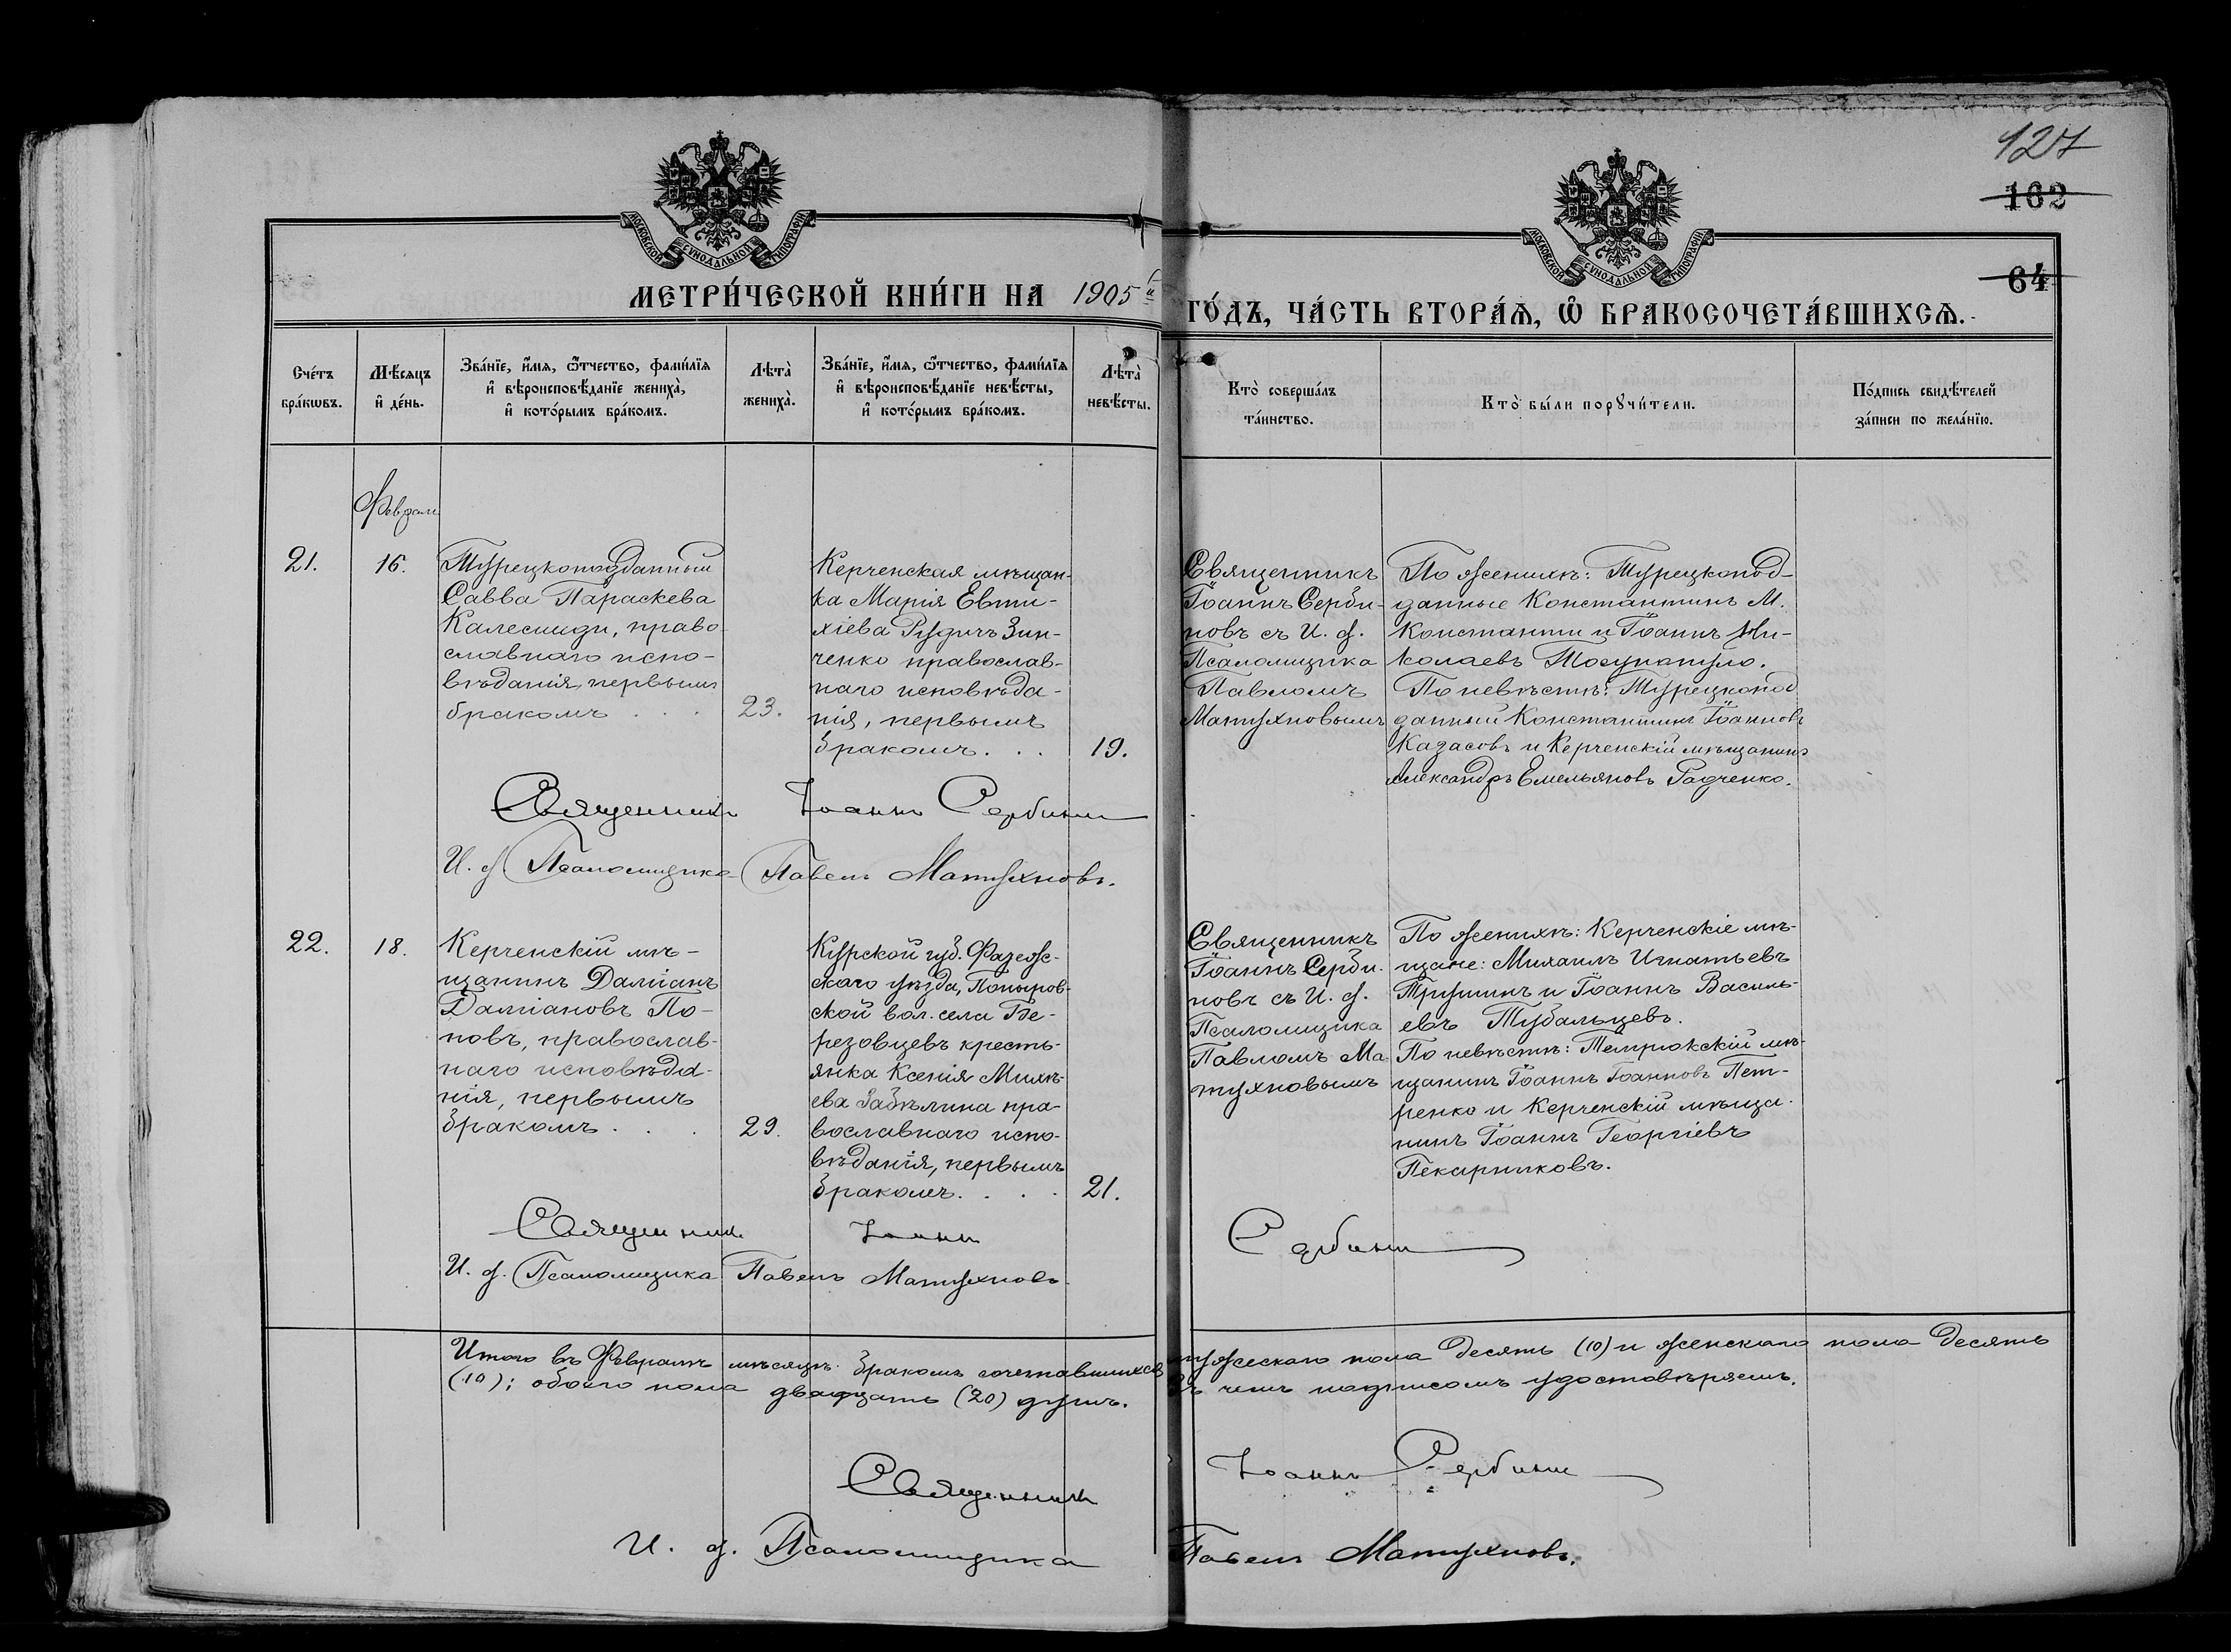 127
162
64
МОСКОВСКОЙ СѴНОДАЛЬНОЙ ТИПОГРАФІИ
МОСКОВСКОЙ СѴНОДАЛЬНОЙ ТИПОГРАФІИ
МЕТРИ́ЧЕСКОЙ КНИ́ГИ НА 1905й ГО́ДЪ, ЧА́СТЬ ВТОРА́Ѧ, Ѽ БРАКОСОЧЕТА́ВШИХСѦ.
Сче́тъ
бра́кѡвъ.
Мѣ́сяцъ
и҆ де́нь.
Зва́нїе, и҆́мя, ѻ҆́тчество, фами́лїя
и҆ вѣроисповѣ́данїе женихà,
и҆ кото́рымъ бра́комъ.
Лѣтà
женихà.
Зва́нїе, и҆́мя, ѻ҆́тчество, фами́лїя
и҆ вѣроисповѣ́данїе невѣ́сты,
и҆ кото́рымъ бра́комъ.
Лѣтà
невѣ́сты.
Ктò соверша́лъ
та́инство.
Ктò бы́ли порꙋчи́тели.
По́дпись свидѣ́телей
за́писи по жела́нїю.
Февраль
21.
16.
Турецкоподданный
Савва Параскева
Калесииди, право-
славнаго испо-
вѣданія, первымъ
бракомъ . . .
23.
Керченская мѣщан-
ка Марія Евти-
хіева Рудичъ Зин-
ченко православ-
наго исповѣда-
нія, первымъ
бракомъ. . .
19.
Священникъ
Іоаннъ Серби-
новъ съ И. д.
Псаломщика
Павломъ
Матухновымъ
По женихѣ: Турецкопод-
данные Константинъ М.
Константи и Іоаннъ Ни-
колаевъ
По невѣстѣ: Турецкопод
данный Константинъ Іоанновъ
Казасовъ и Керченскій мѣщанинъ
Александръ Емельяновъ Радченко.
Священникъ Іоаннъ Сербинов
И. д. Псаломщика Павелъ Матухновъ.
22.
18.
Керченскій мѣ-
щанинъ Даміанъ
Даміановъ По-
повъ, православ-
наго исповѣда-
нія, первымъ
бракомъ . . .
29.
Курской губ. Фатеж-
скаго уѣзда, Поныров-
ской вол. села Бе-
резовцевъ кресть-
янка Ксенія Михѣ-
ева Забѣлина пра-
вославнаго испо-
вѣданія, первымъ
бракомъ. . . .
21.
Священникъ
Іоаннъ Серби-
новъ съ И. д.
Псаломщика
Павломъ Ма-
тухновымъ
По женихѣ: Керченскіе мѣ-
щане: Михаилъ Игнатьевъ
Трушинъ и Іоаннъ Василь-
евъ Тубальцевъ.
По невѣстѣ: Темрюкскій мѣ-
щанинъ Іоаннъ Іоанновъ Пет-
ренко и Керченскій мѣща-
нинъ Іоаннъ Георгіевъ
Пекарниковъ.
Священникъ Іоаннъ Сербинов
И. д. Псаломщика Павелъ Матухновъ
Итого въ Февралѣ мѣсяцѣ бракомъ сочетавшихся мужескаго пола десять (10) и женскаго пола десять
(10); обоего пола двадцать (20) душъ. Въ чемъ подписомъ удостовѣряемъ.
Священникъ Іоаннъ Сербинов
И. д. Псаломщика Павелъ Матухновъ.